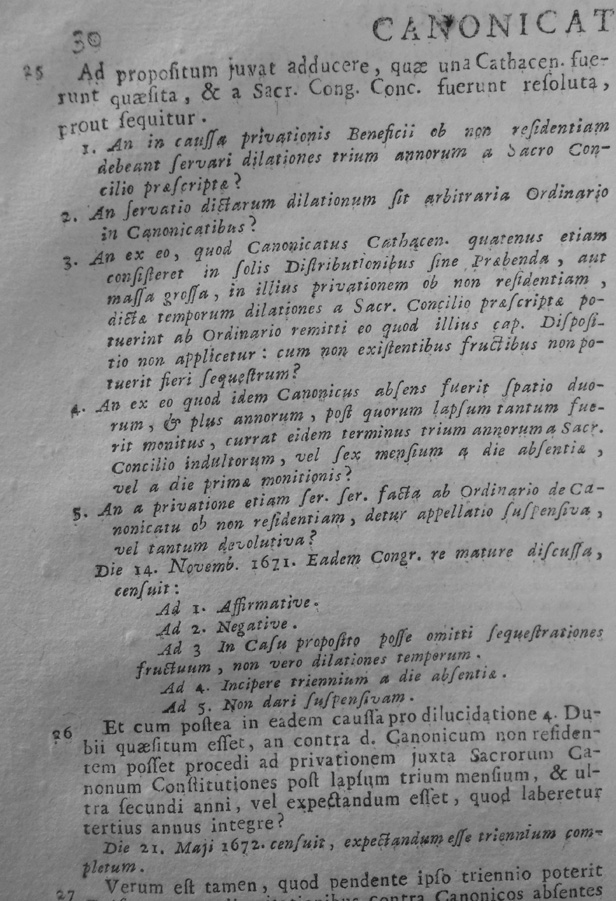 30
CANONICAT
25 Ad propoſitum juvat adducere, quæ una Cathacen. fue-
runt quæſita, & a Sacr. Cong. Conc. fuerunt reſoluta,
prout ſequitur.
1. An in cauſſa privationis Beneficii ob non reſidentiam
debeant ſervari dilationes trium annorum a Sacro Con-
cilio præſcriptæ?
2. An ſervatio dictarum dilationum ſit arbitraria Ordinario
in Canonicatibus?
3. An ex eo, quod Canonicatus Cathacen. quatenus etiam
conſiſteret in ſolis Diſtributionibus ſine Præbenda, aut
maſſa groſſa, in illius privationem ob non reſidentiam,
dictæ temporum dilationes a Sacr. Concilio præſcriptæ po-
tuerint ab Ordinario remitti eo quod illius cap. Diſpoſi-
tio non applicetur: cum non exiſtentibus fructibus non po-
tuerit fieri ſequeſtrum?
4. An ex eo quod idem Canonicus abſens fuerit ſpatio duo-
rum, & plus annorum, poſt quorum lapſum tantum fue-
rit monitus, currat eidem terminus trium annorum a Sacr.
Concilio indultorum, vel ſex menſium a die abſentiæ,
vel a die primæ monitionis?
5. An a privatione etiam ſer. ſer. facta ab Ordinario de Ca-
nonicatu ob non reſidentiam, detur appellatio ſuſpenſiva,
vel tantum devolutiva?
Die 14. Novemb. 1671. Eadem Congr. re mature diſcuſſa,
cenſuit:
Ad 1. Affirmative.
Ad 2. Negative.
Ad 3 In Caſu propoſito poſſe omitti ſequeſtrationes
fructuum, non vero dilationes temporum.
Ad 4. Incipere triennium a die abſentiæ.
Ad 5. Non dari ſuſpenſivam.
26 Et cum poſtea in eadem cauſſa pro dilucidatione 4. Du-
bii quæſitum eſſet, an contra d. Canonicum non reſiden-
tem poſſet procedi ad privationem juxta Sacrorum Ca-
nonum Conſtitutiones poſt lapſum trium menſium, & ul-
tra ſecundi anni, vel expectandum eſſet, quod laberetur
tertius annus integre?
Die 21. Maji 1672. cenſuit, expectandum eſſe triennium com-
pletum.
27 Verum eſt tamen, quod pendente ipſo triennio poterit
contra Canonicos abſentes